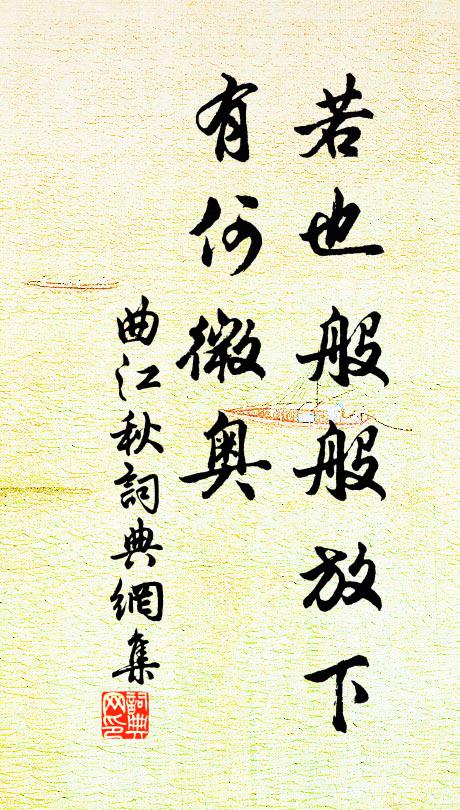 若也般般放下
有何微奧
曲江秋詞典網集
詞典
网印